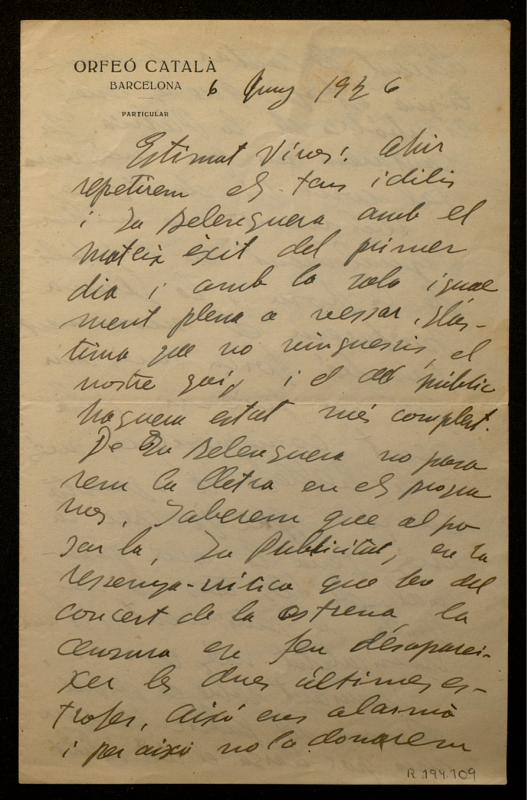 ORFEÓ CATALÀ
BARCELONA
PARTICULAR
6 Juny 1926
Estimat Vives: Ahir
repetirem els teus idilis
i La Balenguera amb el
mateix èxit del primer
dia i amb la sala igual
ment plena a vessar. Llàs-
tima que no vinguessis, el
nostre goig i el del públic
haguera estat més complert.
De La Balenguera no posa
rem la lletra en els progra
mes. Saberem que al po
sar la, La Publicitat, en la
ressenya-crítica que feu del
concert de la estrena, la
censura en feu desaparei-
xer les dues últimes es-
trofes. Això ens alarmà
i per això no la donarem
R 194.109